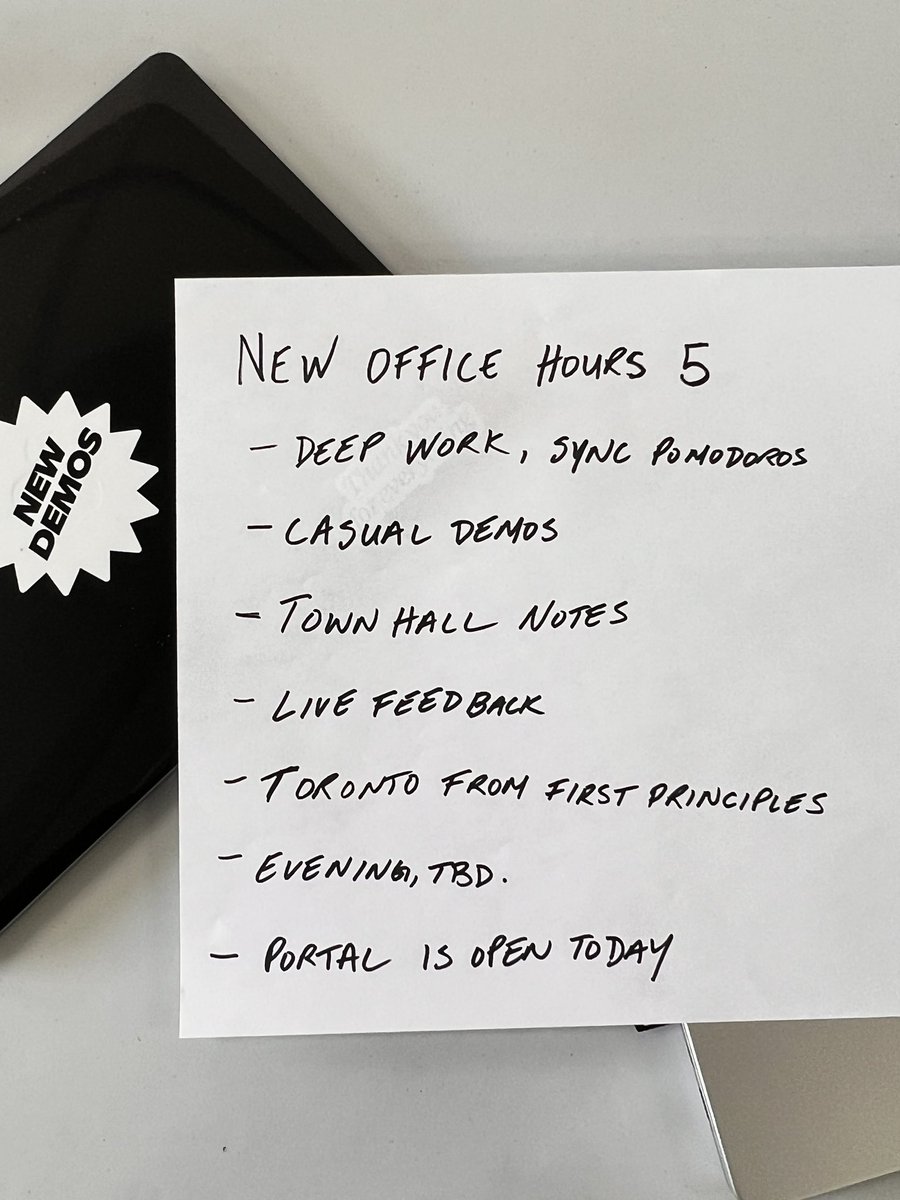 NEW OFFICE HOURS 5
- DEEP WORK, SYNC POMODOROS
- CASUAL DEMOS
- TOWN HALL NOTES
- LIVE FEEDBACK
- TORONTO FROM FIRST PRINCIPLES
- EVENING, TBD.
- PORTAL IS OPEN TODAY
NEW
DEMOS